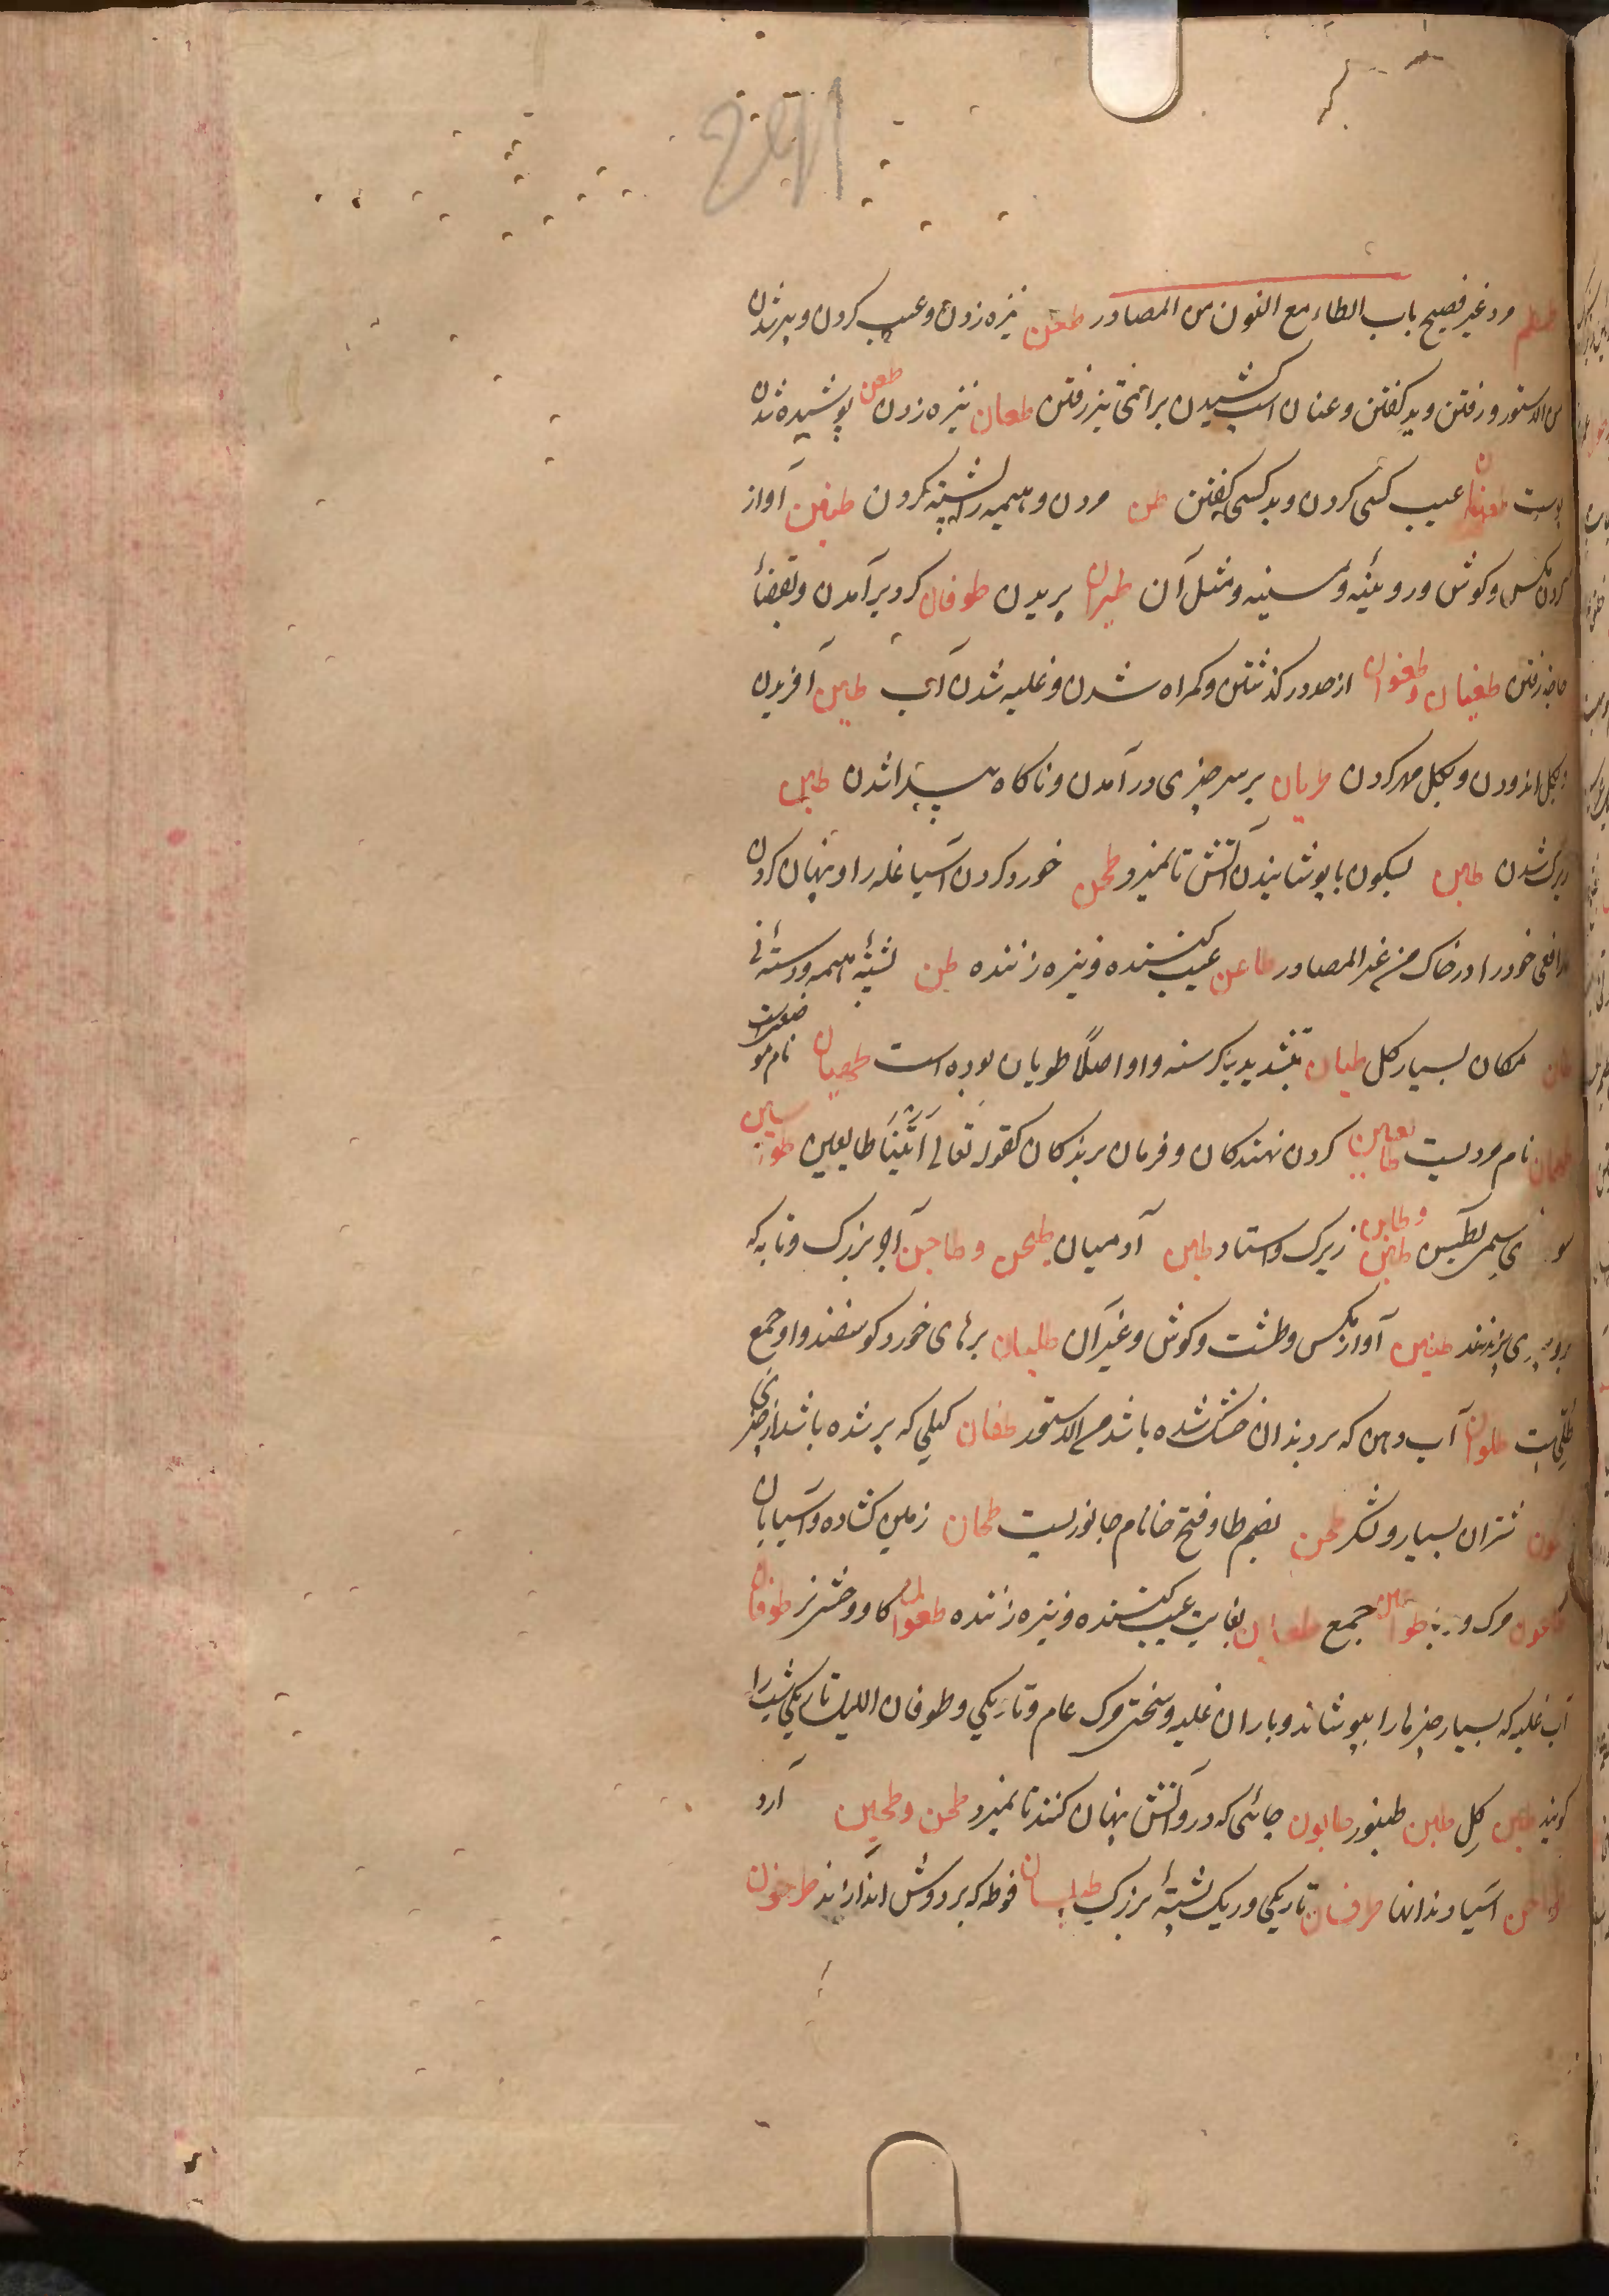 طمطم مرد غیر فصیح باب الطاء مع النون من المصادر طعن نیزه زدن و عیب کردن و پیر شدن
من الدستور و رفتن و بد گفتن و عنان اسب کشیدن برای تیز رفتن طعان نیزه زدن طعن پوشیده شدن
پوست طعنان عیب کسی کردن و بد کسی گفتن طن مردن و هیمه را پشته کردن طنین آواز
کردن مگس و گوش و رویینه و سینه و مثل آن طیران پریدن طوفان گرد برآمدن و بقضاء
حاجة رفتن طغیان و طغوان از حد در گذشتن و گمراه شدن و غلبه شدن آب طین آفریدن
و بگل اندودن و بگل مهر کردن طریان بر سر چیزی در آمدن و ناگاه پیدا شدن طبن
زیرک شدن طبن بسکون با پوشانیدن آتش تا نمیرد طحن خورد کردن آسیا غله را و پنهان کردن
مر افعی خود را در خاک من غیر المصادر طاعن عیب کننده و نیزه زننده طن پشته هیمه و دسته نی
طان مکان بسیار گل طیان بتشدید یا گرسنه و او اصلا طویان بوده است طهیان نام موضعیست
طهمان نام مردیست طایعین گردن نهندگان و فرمان برندگان کقوله تعالی اتینا طایعین طواسین
سو ی طبن و طابن زیرک و استاد طبن آدمیان طیجن و طاجن آجر بزرگ و تابه که
برو چیزی پزند طنین آواز مگس و طشت و گوش و غیر آن طلیان برهای خورد گوسفند و او جمع
طلی است طلوان آب دهن که بر دندان خشک شده باشد من الدستور طفان کیلی که پر شده باشد از چیزی
طحون شتران بسیار و لشکر طحن بضم طا و فتح حا نام جانوریست طحان زمین گشاده و آسیابان
طاعون مرگ و با طواعین جمع طعان بغایت عیب کننده و نیزه زننده گاو وحشی نر طوفان
آب غلبه که بسیار چیزها را بپوشاند و باران غلبه و سختی مرگ عام و تاریکی و طوفان اللیل تاریکی شب را
گویند طین گل طبن طنبور طابون جائی که درو آتش پنهان کنند تا نمیرد طحن و طحین آرد
طواحن آسیا دندانها طرفسان تاریکی و ریگ پشته بزرگ طیلسان فوطه که بر دوش اندازند طرخون